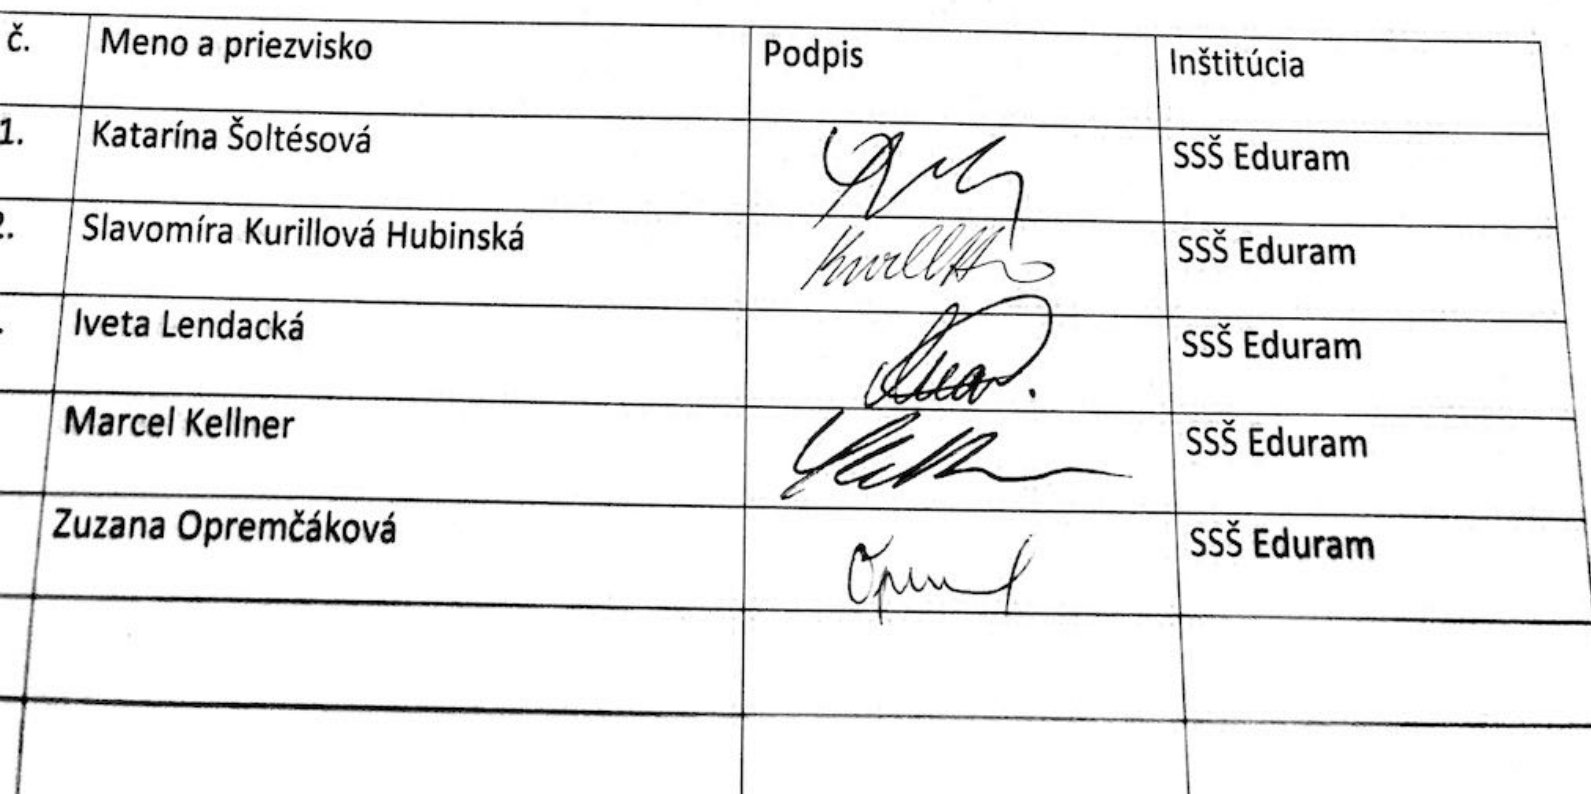 č. Meno a priezvisko Podpis Inštitúcia
1. Katarína Šoltésová SSŠ Eduram
2. Slavomíra Kurillová Hubinská SSŠ Eduram
. Iveta Lendacká SSŠ Eduram
Marcel Kellner SSŠ Eduram
Zuzana Opremčáková SSŠ Eduram